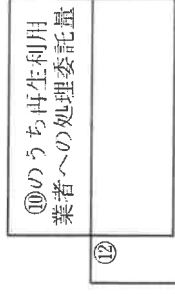 ⑩のうち再生利用
業者への処理委託量
⑫